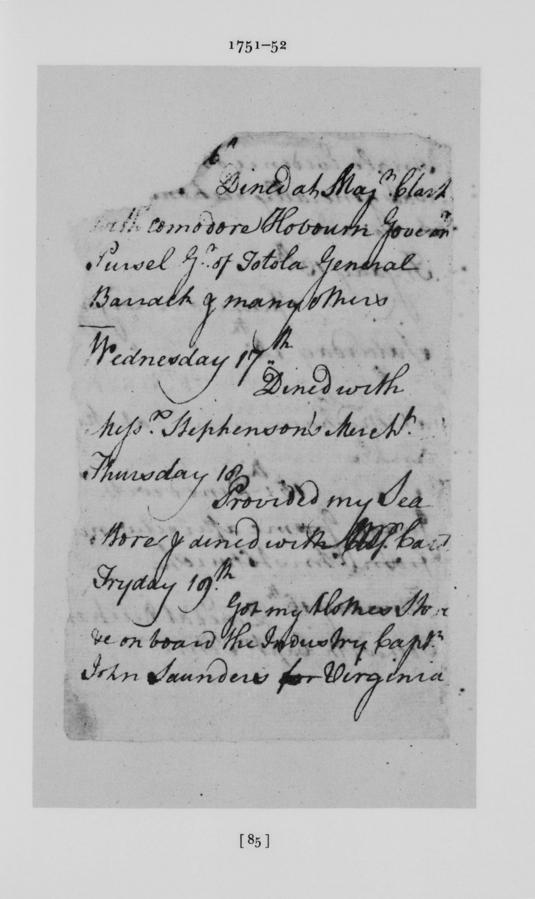 1751–52
Dined at Majr. Clark
with comodore Hobourn Govenr.
Pursel Gr. of Totola General
Barrack & many others
Wednesday 17th
Dined with
Messrs. Stephenson's Mercht.
Thursday 18
Provided my Sea
Store & dined with
Fryday 19th.
Got my Clothes Stor
&c on board the Industry Captn.
John Saunders for Virginia
[ 85 ]